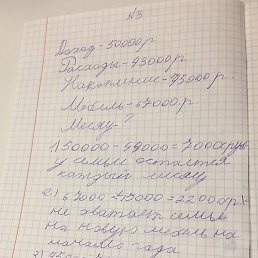 №3
Доход - 50000 р
Расходы - 43000 р
Накопления - 45000 р.
Мебель - 67000 р
Месяц - ?
1) 50000 - 43000 = 7000 (руб)
у семьи остаётся
каждый месяц
2) 67000 - 45000 = 22000 (р) -
не хватает семье
на новую мебель на
начало года